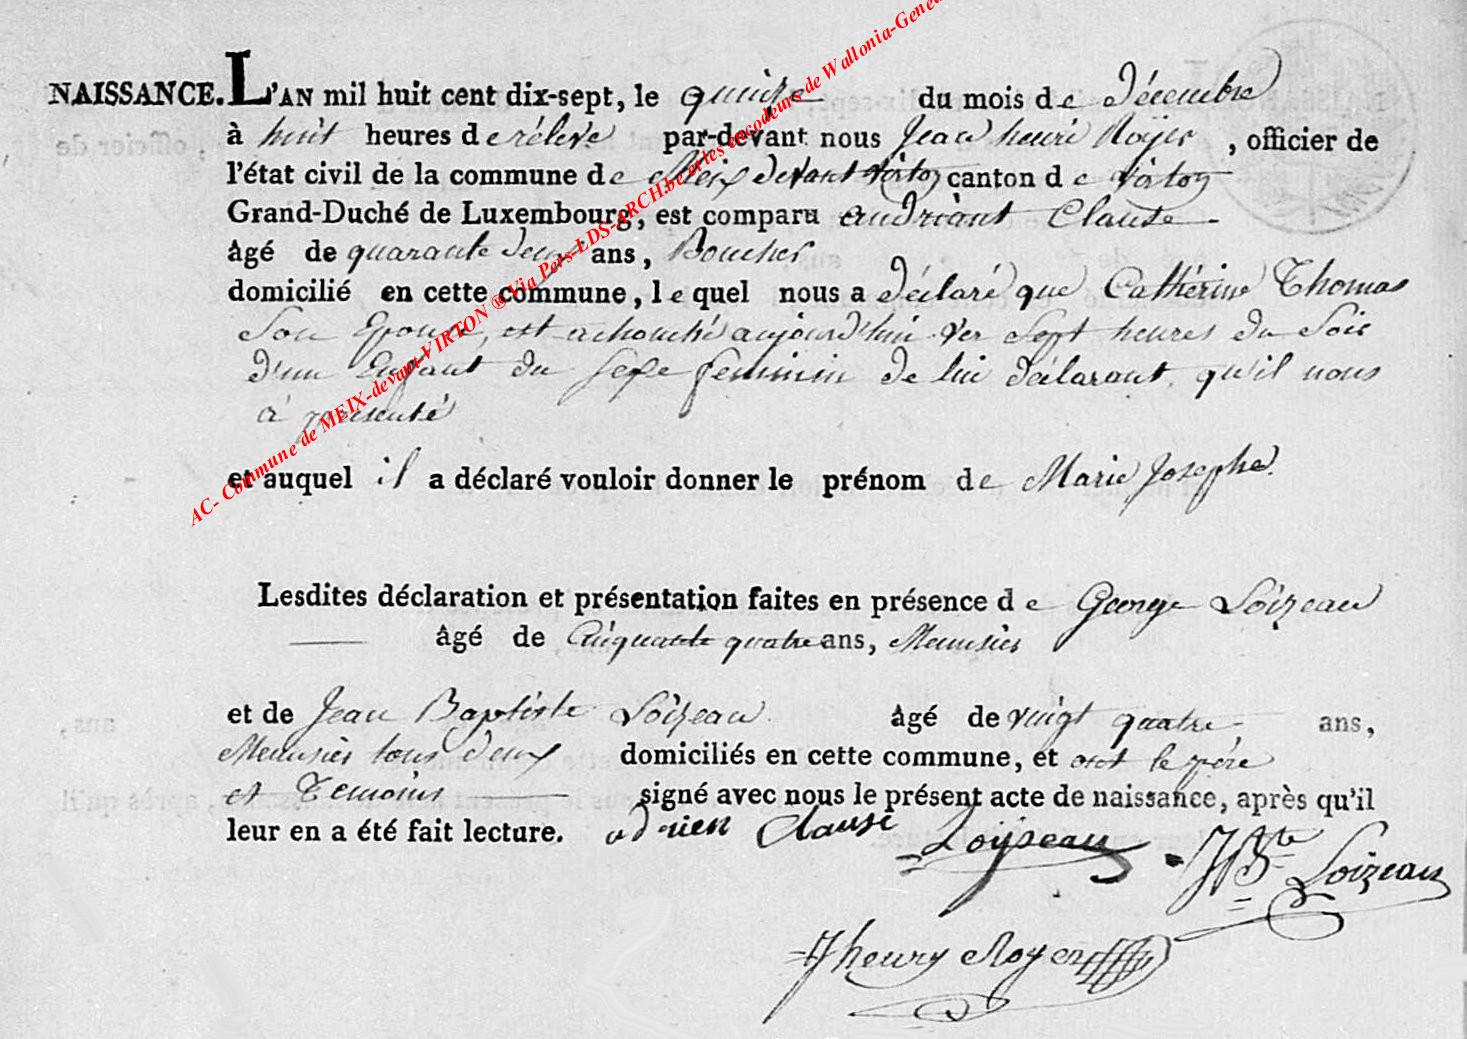 NAISSANCE. L'AN mil huit cent dix-sept, le quinze du mois de décembre
à huit heures de rélevé par-devant nous Jean henri Royer, officier de
l'état civil de la commune de Meix devant virton canton de virton
Grand-Duché de Luxembourg, est comparu andriant Clause
âgé de quarante deux ans, Boucher
domicilié en cette commune, lequel nous a déclaré que Cathérine Thomas
Son Epouse, est achouché aujourd'hui ver Sept heures du Soir
d'un Enfant du sexe feminin de lui déclarant, qu'il nous
à présenté
et auquel il a déclaré vouloir donner le prénom de Marie Josephe.
Lesdites déclaration et présentation faites en présence de George Loizeau
âgé de Cinquante quatre ans, Meunsier
et de Jean Baptiste Loizeau âgé de vingt quatre ans,
Meunsier tous deux domiciliés en cette commune, et ont le père
et Temoins signé avec nous le présent acte de naissance, après qu'il
leur en a été fait lecture. adrien Clause Loijseau JBte Loizeau
Jhenry Royer
AC- Commune de MEIX-devant-VIRTON ® Via Pers-LDS-ARCH.be et les encodeurs de Wallonia-Genea